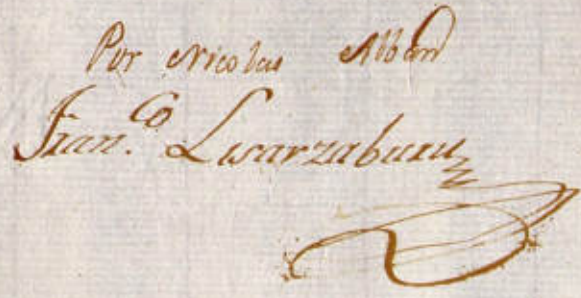 Por Nicolas Alban
Fran.co Lisarzaburu